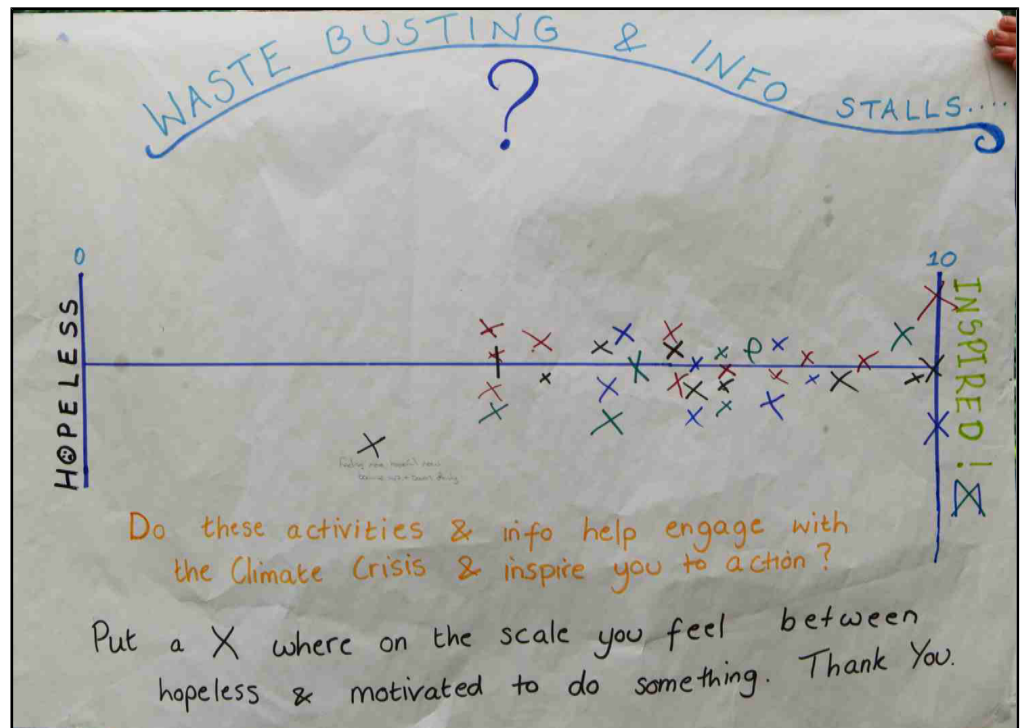 WASTE BUSTING & INFO STALLS....
?
0
10
HOPELESS
INSPIRED!
Do these activities & info help engage with
the Climate Crisis & inspire you to action?
Put a X where on the scale you feel between
hopeless & motivated to do something. Thank You.